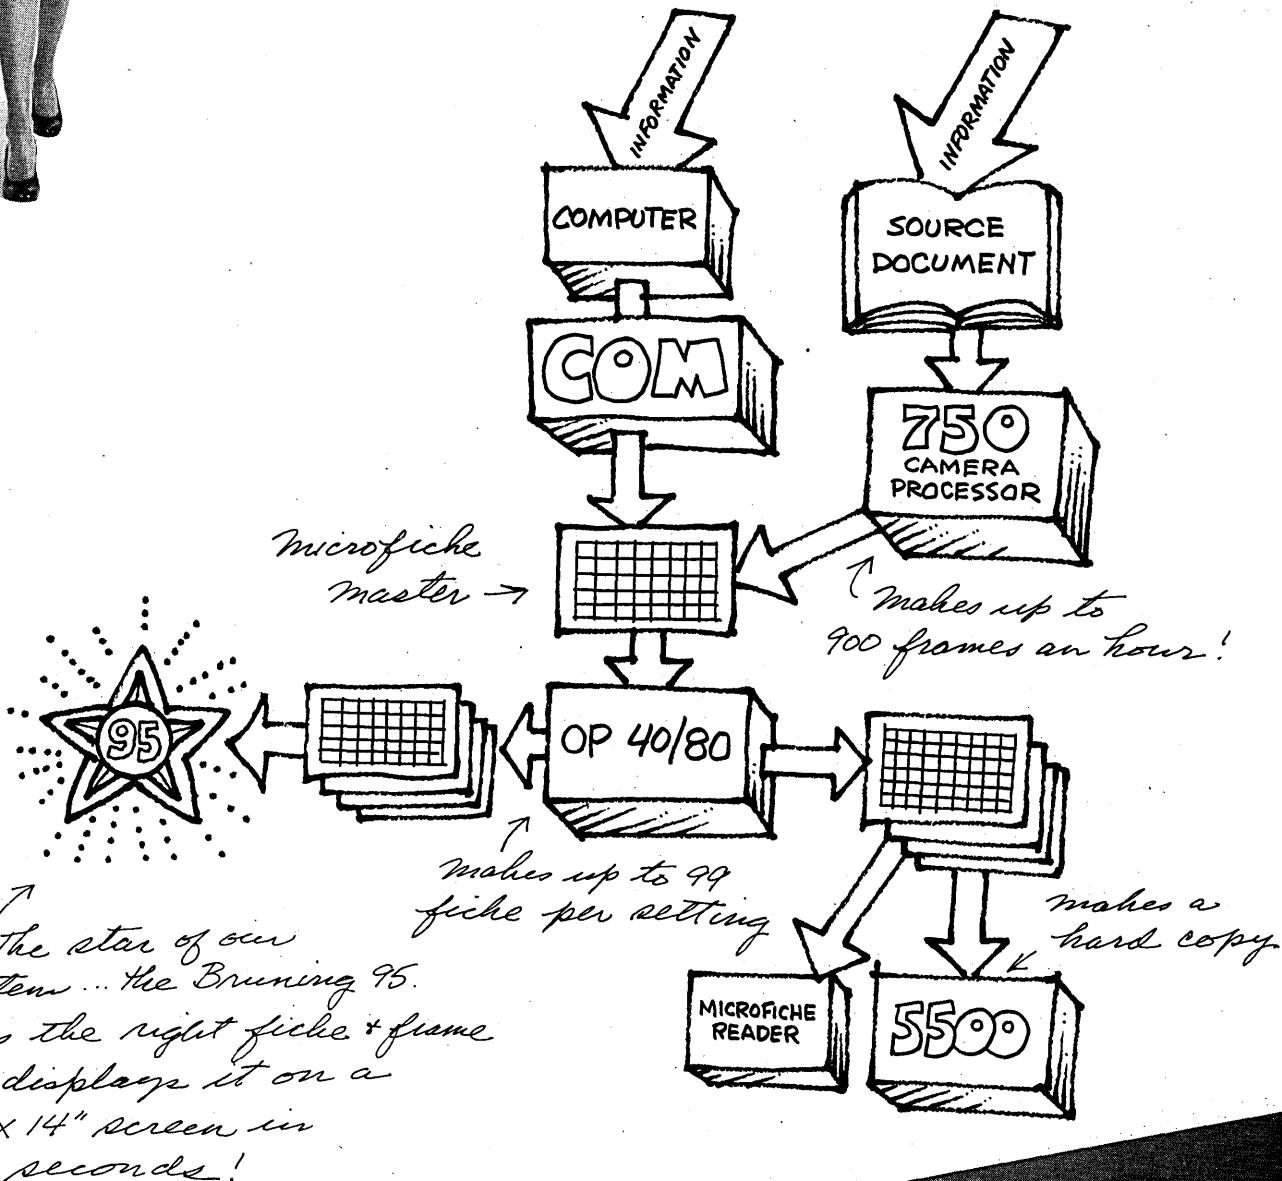 INFORMATION
INFORMATION
COMPUTER
SOURCE
DOCUMENT
COM
750
CAMERA
PROCESSOR
microfiche
master
makes up to
900 frames an hour!
95
OP 40/80
makes up to 99
fiche per setting
makes a
hard copy
the star of our
... the Bruning 95.
the right fiche + frame
displays it on a
x 14" screen in
seconds!
MICROFICHE
READER
5500